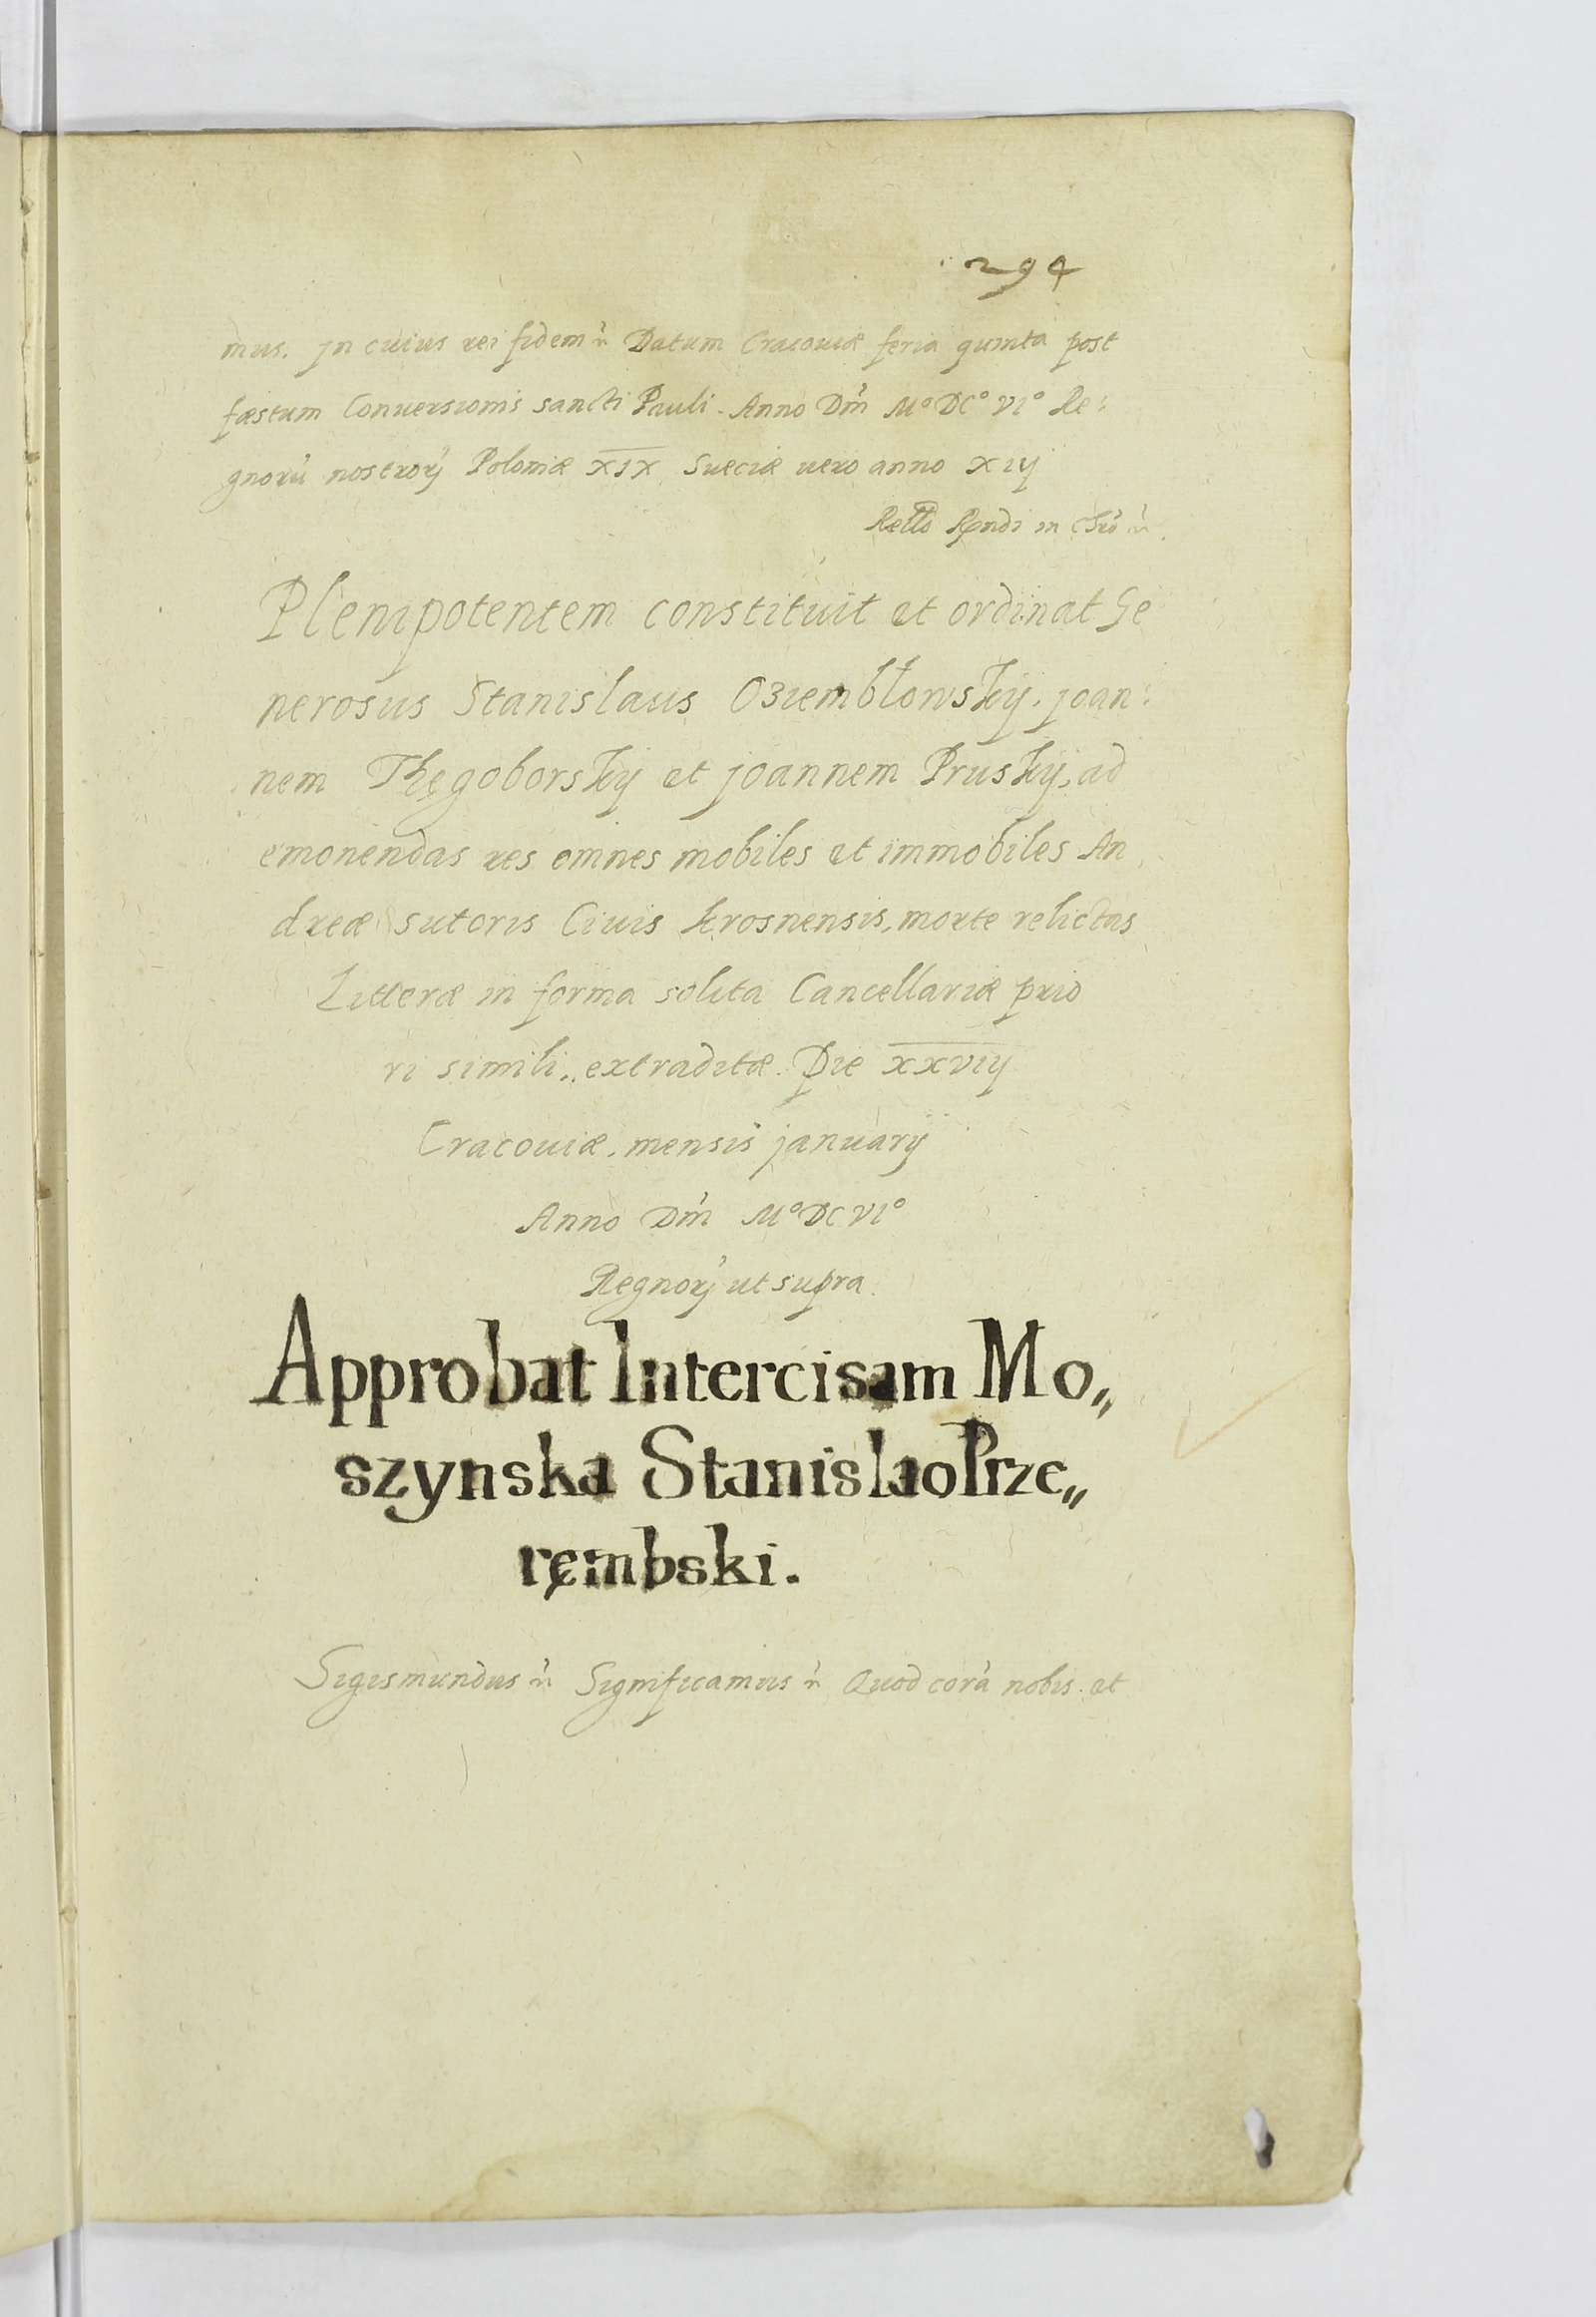 294
mus. jn cuius rei fidem Datum Cracouiæ feria quinta post
fæstum Conuersionis sancti Pauli. Anno Dni M° DC° VI° Re:
gnorũ nostrorꝝ Poloniæ XIX, Sueciæ uero anno XIIJ
in
Plenipotentem constituit et ordinat Ge
nerosus Stanislaus Oziembłowskÿ. joan:
nem Thegoborskÿ et joannem Pruskÿ, ad
emonendas res omnes mobiles et immobiles An
dreæ sutoris Ciuis krosnensis, morte relictas
Litteræ in forma solita Cancellariæ prio
ri simili, extraditæ. Die XXVIIJ
Cracouiæ. mensis januarÿ
Anno Dni M°DCVI°
Regnorꝝ ut supra.
Approbat Intercisam Mo„
szynska Stanislao Prze„
rębmski.
Sigismundus Significamus Quod corã nobis et